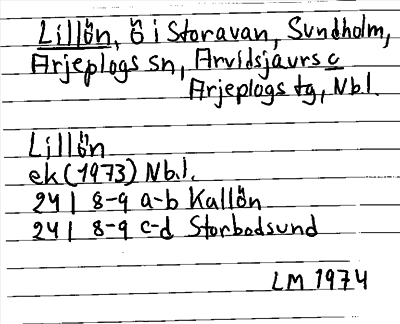 Lillön, ö i Storavan, Sundholm,
Arjeplogs sn, Arvidsjaurs o
Arjeplogs tg, Nbl.
Lillön
ek (1973) Nbl.
24 I 8-9 a-b Kallön
24 I 8-9 c-d Storbodsund
LM 1974